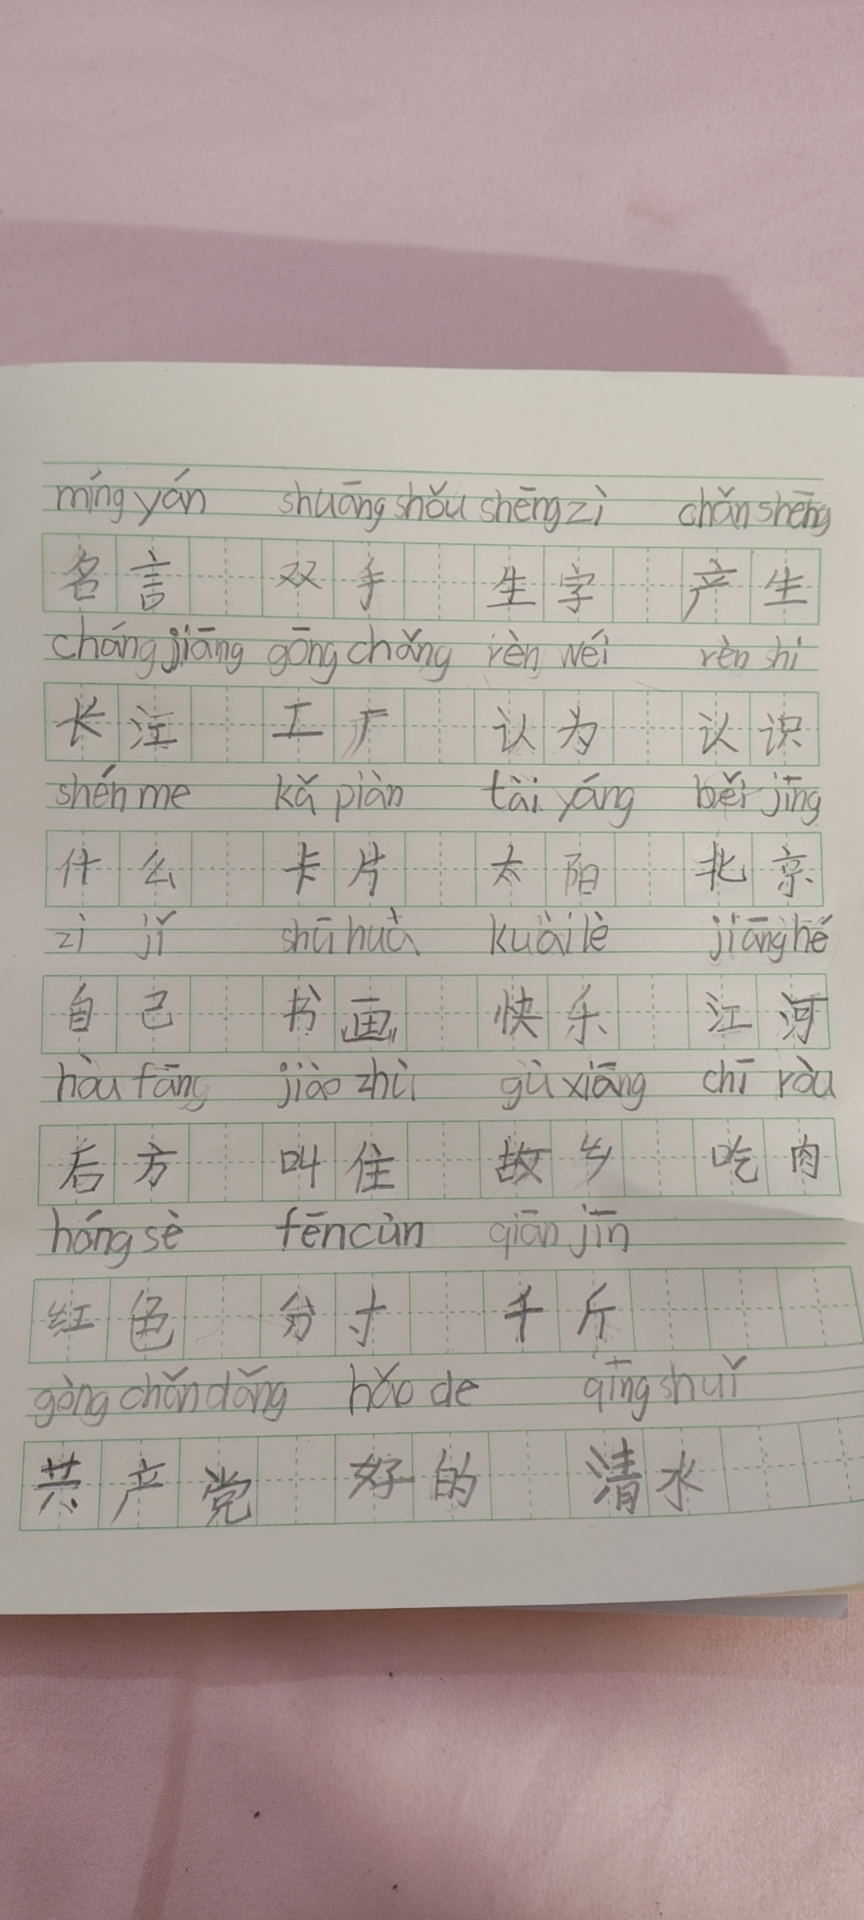 míng yán shuāng shǒu shēng zì chǎn shēng
名言 双手 生字 产生
cháng jiāng gōng chǎng rèn wéi rèn shi
长江 工厂 认为 认识
shén me kǎ piàn tài yáng běi jīng
什么 卡片 太阳 北京
zì jǐ shū huà kuài lè jiāng hé
自己 书画 快乐 江河
hòu fāng jiào zhù gù xiāng chī ròu
后方 叫住 故乡 吃肉
hóng sè fēn cùn qiān jīn
红色 分寸 千斤
gòng chǎn dǎng hǎo de qīng shuǐ
共产党 好的 清水